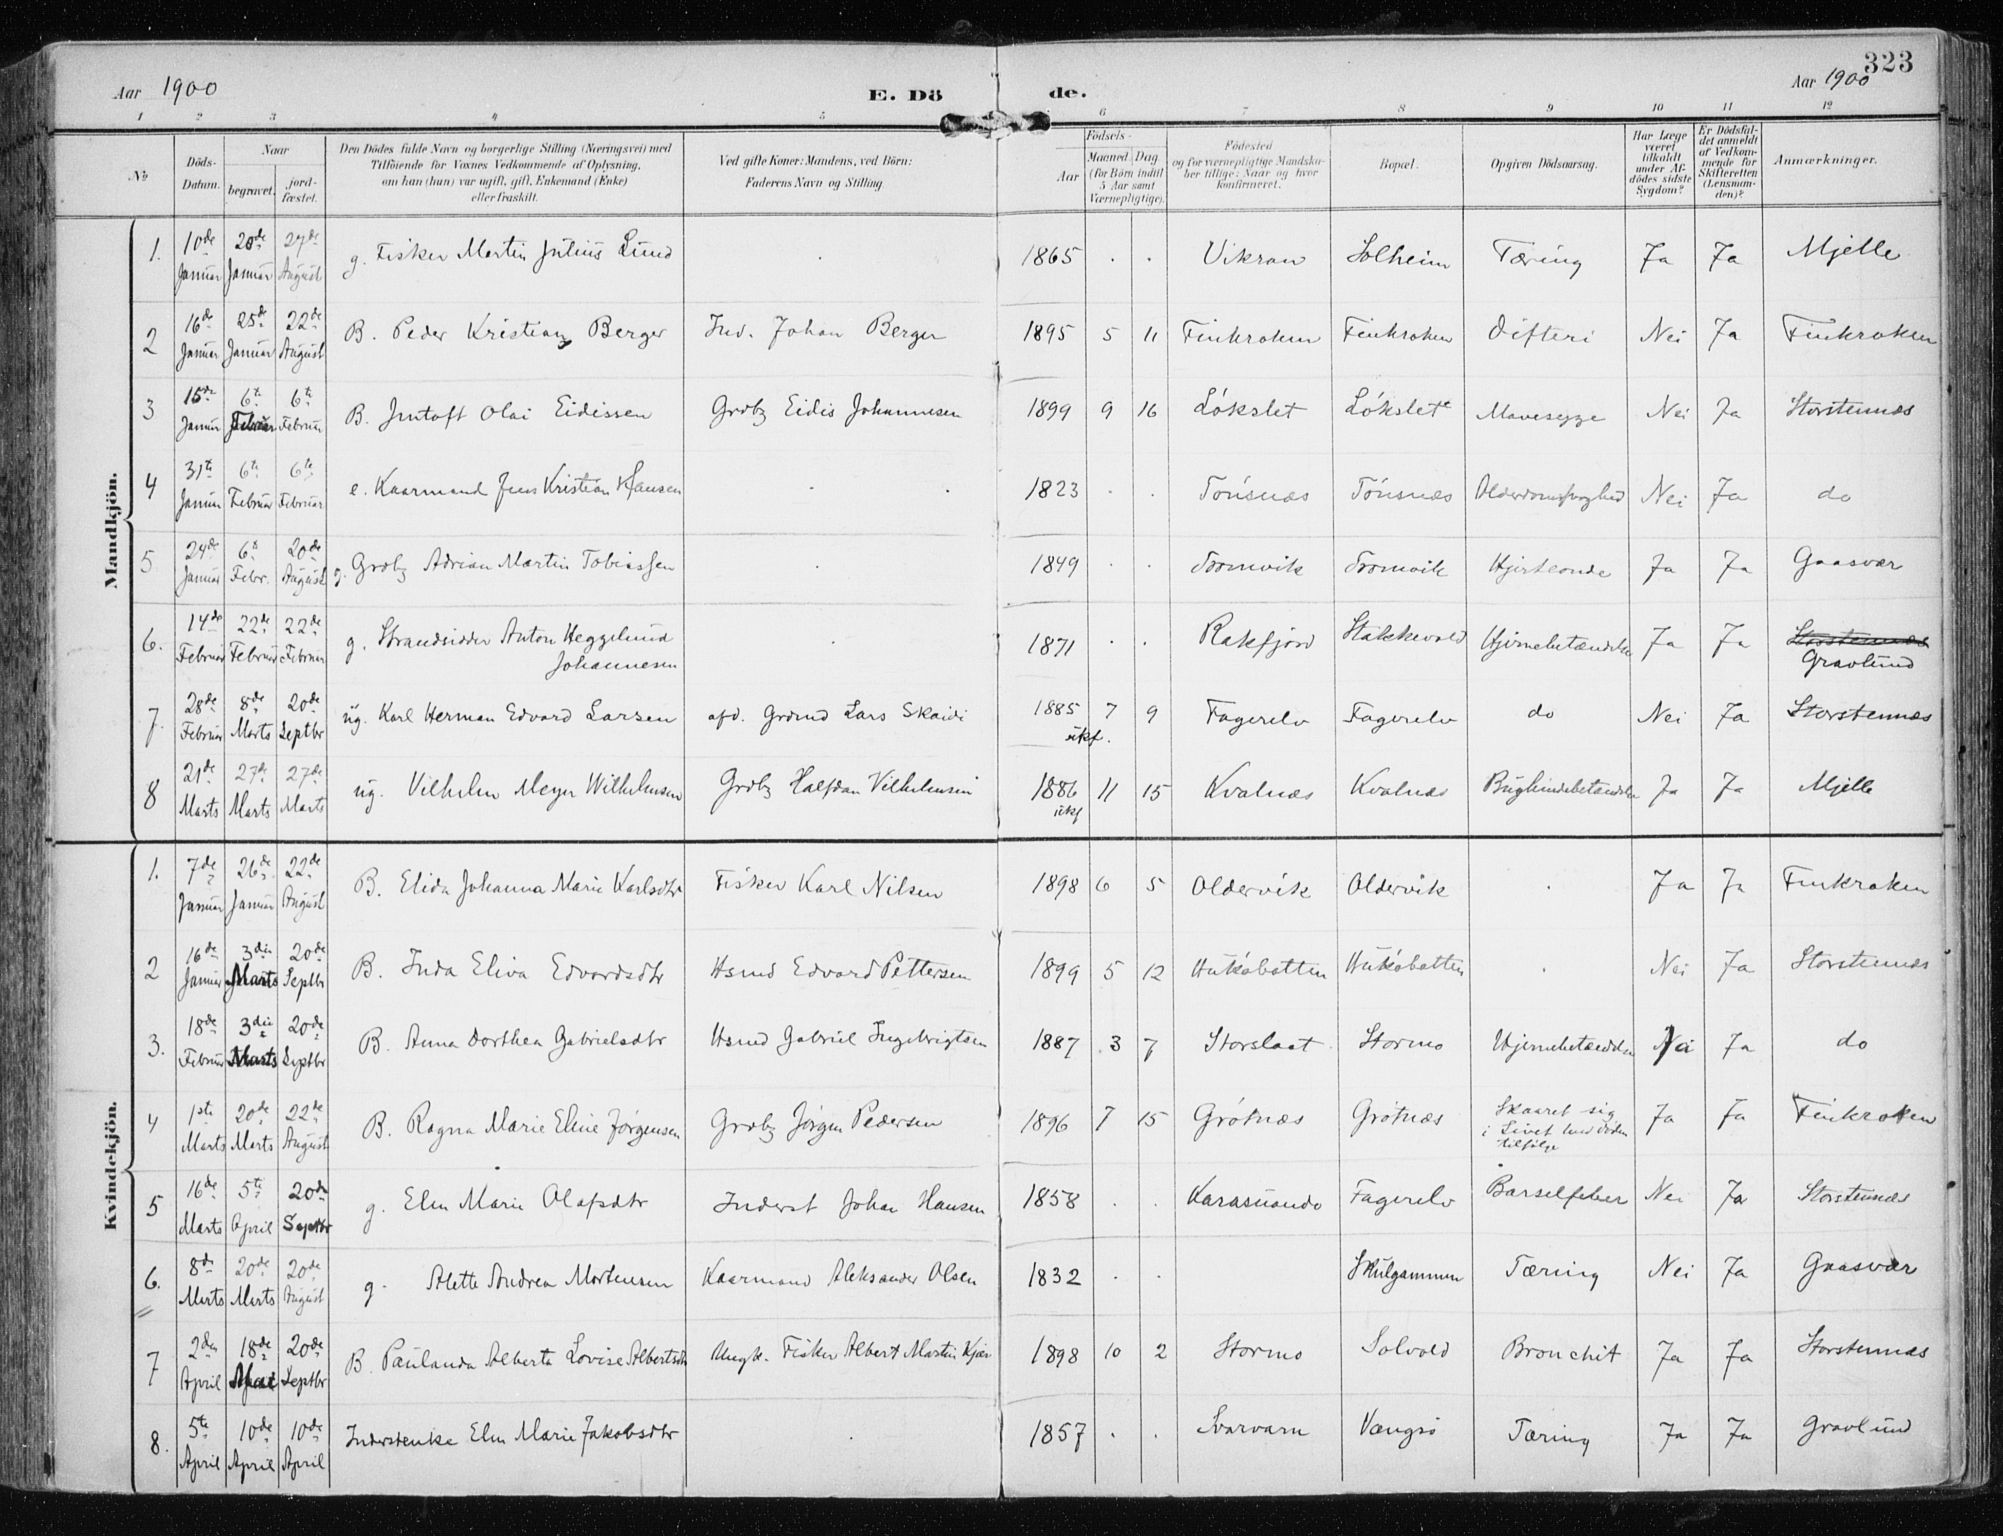 323
Aar 1900 E. Dö de. Aar 1900
1 2 3 4 5 6 7 8 9 10 11 12
No Döds-Datum. Naar begravet. jord-fæstet. Den Dödes fulde Navn og borgerlige Stilling (Næringsvei) med Tilföiende for Voxnes Vedkommende af Oplysning, om han (hun) var ugift, gift, Enkemand (Enke) eller fraskilt. Ved gifte Koner: Mandens, ved Börn: Faderens Navn og Stilling Födsels- Aar Maaned Dag (for Börn indtil 5 Aar samt Værnepligtige). Födested og for værnepligtige Mandskaber tillige: Naar og hvor konfirmeret. Bopæl. Opgiven Dödsaarsag. Har Læge været tilkaldt under Afdödes sidste Sygdom? Er Dödsfaldet anmeldt af Vedkommende for Skifteretten (Lensmanden)? Anmærkninger.
Mandkjön.
1. 10de Januar 20de Januar 27de August g. Fisker Martin Julius Lund . 1865 . . Vikran Solheim Tæring Ja Ja Mjelle
2 16de Januar 25de Januar 22de August B. Peder Kristian Berger Ind. Johan Berger 1895 5 11 Finkroken Finkroken Difteri Nei Ja Finkroken
3 15de Januar 6te Februar 6te Februar B. Jentoft Olai Eidissen Grdbr Eidis Johannesen 1899 9 16 Lökslet Lökslet Mavesygge Nei Ja Storstennæs
4 31te Januar 6te Februar 6te Februar e. Kaarmand Jens Kristian Hansen . 1823 . . Tönsnæs Tönsnæs Alderdomssvaghed Nei Ja do
5 24de Januar 6te Febr. 20de August g. Grdbr Adrian Martin Tobiassen . 1849 . . Tromvik Tromvik Hjerteonde Ja Ja Gaasvær
6. 14de Februar 22de Februar 22de Februar g. Strandsidder Anton Heggelund Johannesen . 1871 . Rakfjord Stakkevold Hjernebetændelse Ja Ja Storstennæs Gravlund
7. 28de Februar 8de Marts 20de Septbr ug. Karl Herman Edvard Larsen afd. Grdmd Lars Skaidi 1885 ukf. 7 9 Fagerelv Fagerelv do Nei Ja Storstennæs
8 21de Marts 27de Marts 27de Marts ug. Vilhelm Meyer Wilhelmsen Grdbr Halfdan Vilhelmsen 1886 ukf 11 15 Kvalnæs Kvalnæs Bughindebetændelse Ja Ja Mjelle
Kvindekjön.
1. 7de Januar 26de Januar 22de August B. Elida Johanna Marie Karlsdtr Fisker Karl Nilsen 1898 6 5 Oldervik Oldervik . Ja Ja Finkroken
2 16de Januar 3die Marts 20de Septbr B. Inda Eliva Edvardsdtr Hsmd Edvard Pettersen 1899 5 12 Huköbotten Huköbotten . Nei Ja Storstennæs
3. 18de Februar 3die Marts 20de Septbr B. Anna Dorthea Gabrielsdtr Hsmd Gabriel Ingebrigtsen 1887 3 7 Storslaat Stormo Hjernebetændelse Nei Ja do
4 1ste Marts 20de Marts 22de August B. Ragna Marie Eline Jørgensen Grdbr Jørgen Pedersen 1896 7 15 Grötnæs Grötnæs Skaaret sig i Livet med döden tilfølge Ja Ja Finkroken
5 16de Marts 5te April 20de Septbr g. Elen Marie Olafsdtr Inderst Johan Hansen 1858 . . Karasuando Fagerelv Barselfeber Nei Ja Storstennæs
6. 8de Marts 20de Marts 20de August g. Alette Andrea Mortensen Kaarmand Aleksander Olsen 1832 . . Skulgammen Tæring Nei Ja Gaasvær
7 2den April 18de Mai 20de Septbr B. Paulanda Alberta Lovise Albertsdtr Ungk. Fisker Albert Martin Kjær 1898 10 2 Stormo Solvold Bronchit Ja Ja Storstennæs
8. 5te April 10de April 10de April Inderstenke Elen Marie Jakobsdtr . 1857 . . Svarvarn Vængsö Tæring Ja Ja Gravlund